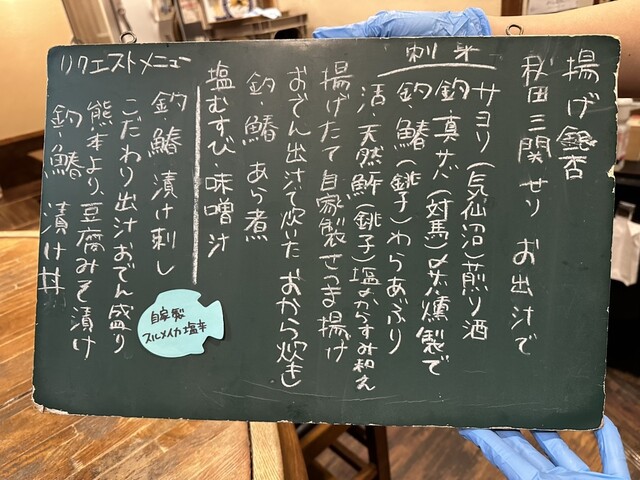 揚げ銀杏
秋田三関せり お出汁で
刺身
サヨリ(気仙沼)煎り酒
釣 真サバ(対馬)〆サバ燻製で
釣・鰆(銚子)わらあぶり
活・天然鮃(銚子)塩からすみ和え
揚げたて自家製さつま揚げ
おでん出汁で炊いた おから炊き
釣・鰆 あら煮
塩むすび・味噌汁
リクエストメニュー
釣 鰆 漬け刺し
こだわり出汁おでん盛り
熊本より、豆腐みそ漬け
釣・鰆 漬け丼
自家製
スルメイカ塩辛